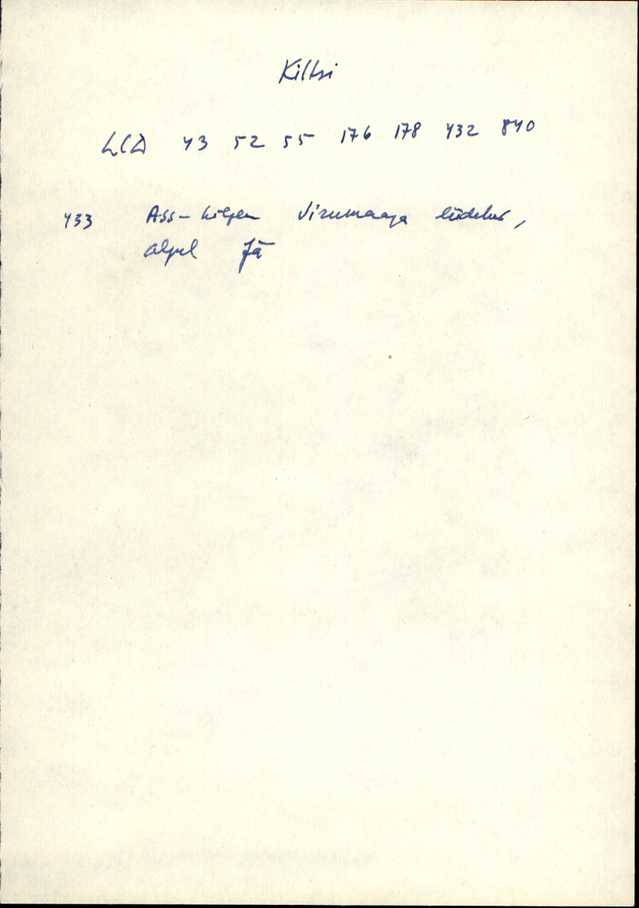 Kiltsi
LCD 43 52 55 176 178 432 840
433 Ass- hiljem Virumaaga liidetud,
algul Jä